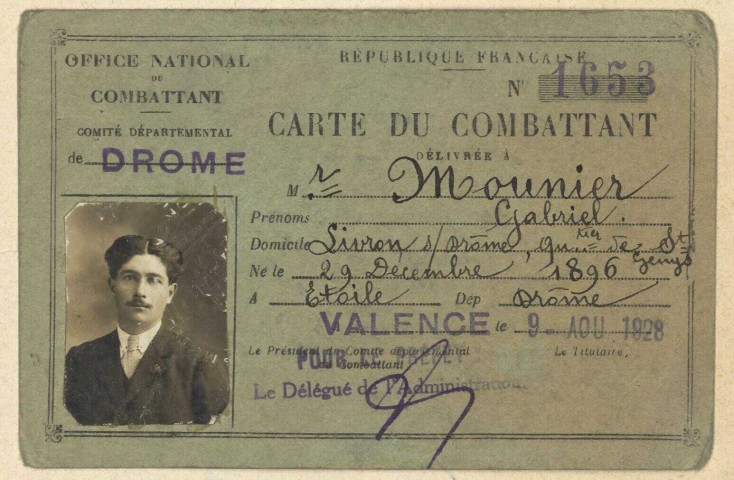 OFFICE NATIONAL
DU
COMBATTANT
COMITÉ DÉPARTEMENTAL
de DROME
RÉPUBLIQUE FRANÇAISE
N° 1653
CARTE DU COMBATTANT
DÉLIVRÉE À
M r Mounier
Prénoms Gabriel.
Domicile Livron s/Drôme, qu ier de St Genys
Né le 29 Décembre 1896
A Etoile Dép Drôme
VALENCE le 9 - AOU 1928
Le Président du Comité départemental
du Combattant
Le Titulaire,
POUR LE PREFET
Le Délégué de l'Administration